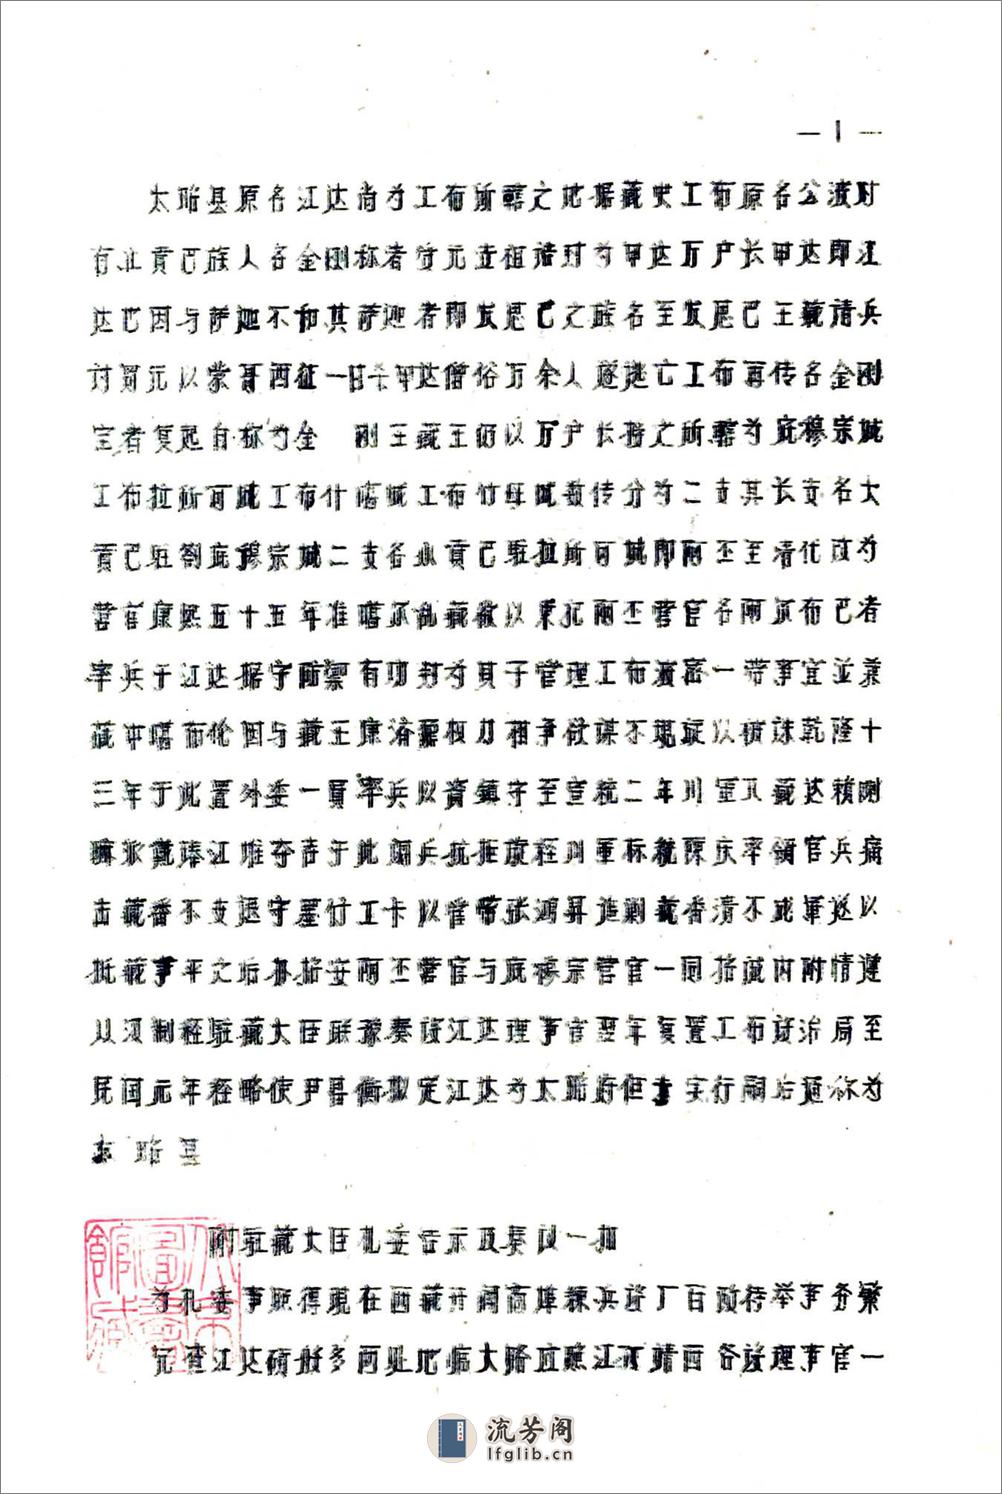 — 1 —
太昭县原名江达尚为工布所辖之地据藏史工布原名公波时
有业贡巴族人名金刚称者皆元世祖诸封为甲达万户长甲达即江
达巴因与萨迦不和其萨迦者即发思巴之族名至发思巴王藏请兵
讨蜀元以蒙哥西征一日杀甲达僧俗万余人遂逃亡工布再传名金刚
宝者复起自称为金 刚王藏王仍以万户长授之所辖为底穆宗城
工布拉所可城工布什噶城工布竹母城数传分为二支其长支名大
贡巴驻劄底穆宗城二支名小贡巴驻拉所可城即雨丕至清代改为
营官康熙五十五年准噶尔乱藏敏以 雨丕营官名雨尔布巴者
率兵于江达据守防御有功封为其子管理工布波密一带事宜並兼
藏中噶布伦因与藏王康济鼐权力相争欲谋不规旋以被诛乾隆十
三年于此置外委一员率兵以资镇守至宣统二年川军入藏达赖喇
嘛派戴琫江堆夺吉于此编兵抗拒旋经川军标统陈庆率领官兵痛
击藏番不支退守墨竹工卡以管带张鸿昇进剿藏番清不成军送以
抵藏事平之后招安雨丕营官与底穆宗营官一同输诚内附情遵
以汉制经驻藏大臣联豫奏设江达理事官翌年复置工布设治局至
民国元年经略使尹昌衡拟定江达为太昭府但未实行嗣后通称为
太昭县
附驻藏大臣札委告示及奏议一扣
为札委事照得现在西藏开阔商埠练兵设厂百政待举事务繁
冗查江达硕般多两处地临大路应照江孜靖西各设理事官一
流芳阁
lfglib.cn